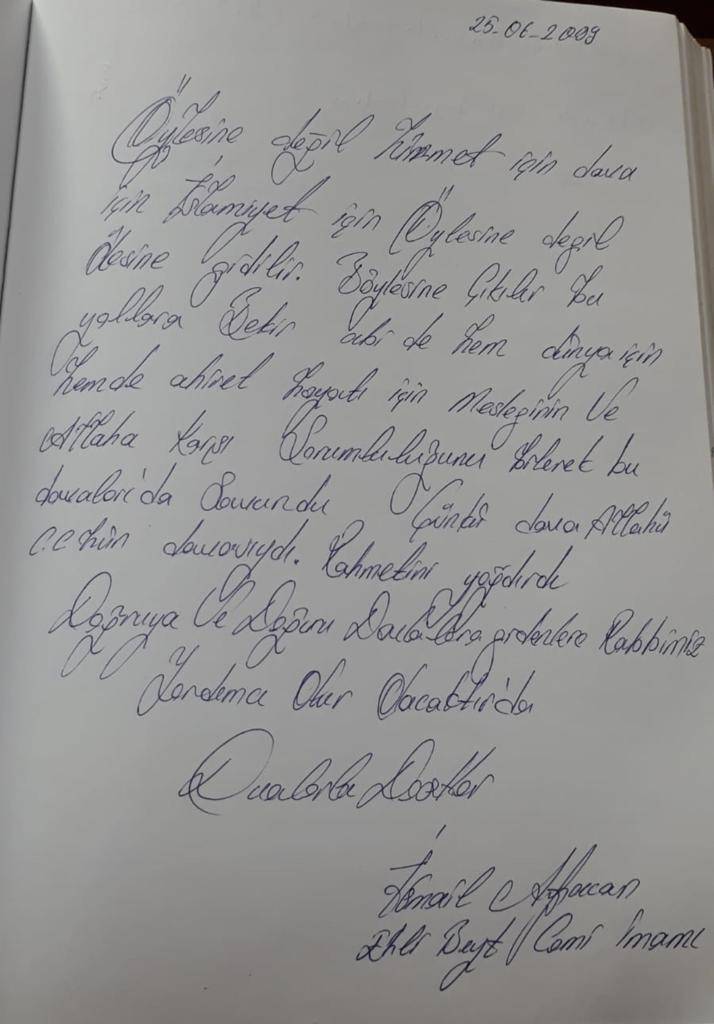 25-06-2009
Öylesine değil hizmet için dava
için İslamiyet için Öylesine değil
Ölesine gidilir. Böylesine Çıkılır bu
yollara Bekir abi de hem dünya için
hemde ahiret hayatı için Mesleginin Ve
Allaha karşı Sorumluluğunu bilerek bu
davaları'da Savundu Çünkü dava Allahü
c.c hün davasıydı. Rahmetini yağdırdı
Doğruya Ve Doğuru Davalara gidenlere Rabbimiz
Yardımcı Olur Olacaktır'da
Dualarla Dostlar
İsmail
Ehli Beyt Cami İmamı